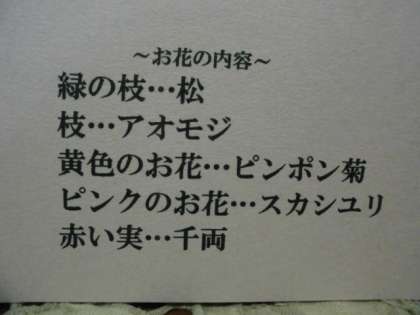 ～お花の内容～
緑の枝…松
枝…アオモジ
黄色のお花…ピンポン菊
ピンクのお花…スカシユリ
赤い実…千両